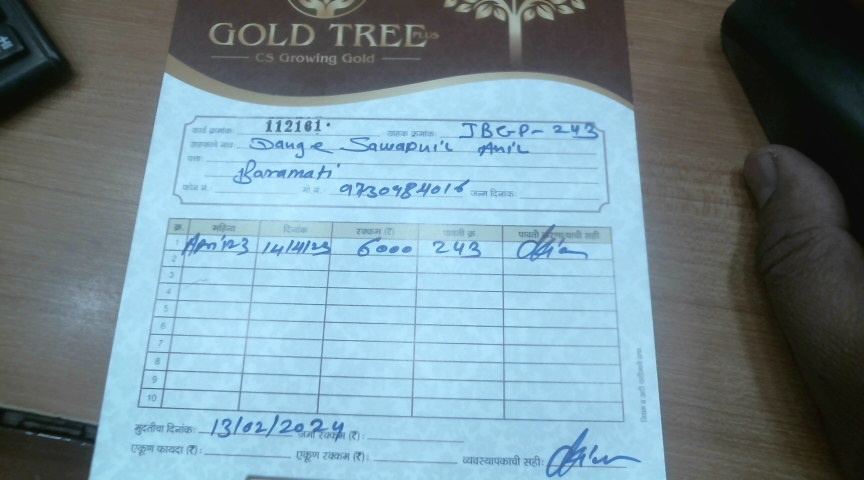 GOLD TREE PLUS
CS Growing Gold
कार्ड क्रमांक: 112161. ग्राहक क्रमांक: JBGP-243
ग्राहकाचे नाव: Dange Sawapnil Anil
पत्ता: Baramati
फोन नं. मो. नं. 9730984016 जन्म दिनांक:
क्र. महिना दिनांक रक्कम (₹) पावती क्र.
1 April 23 14/4/23 6000 243
2
3
4
5
6
7
8
9
10
मुदतीचा दिनांक: 13/02/2024 जमा रक्कम (₹):
एकूण फायदा (₹): एकूण रक्कम (₹): व्यवस्थापकाची सही: